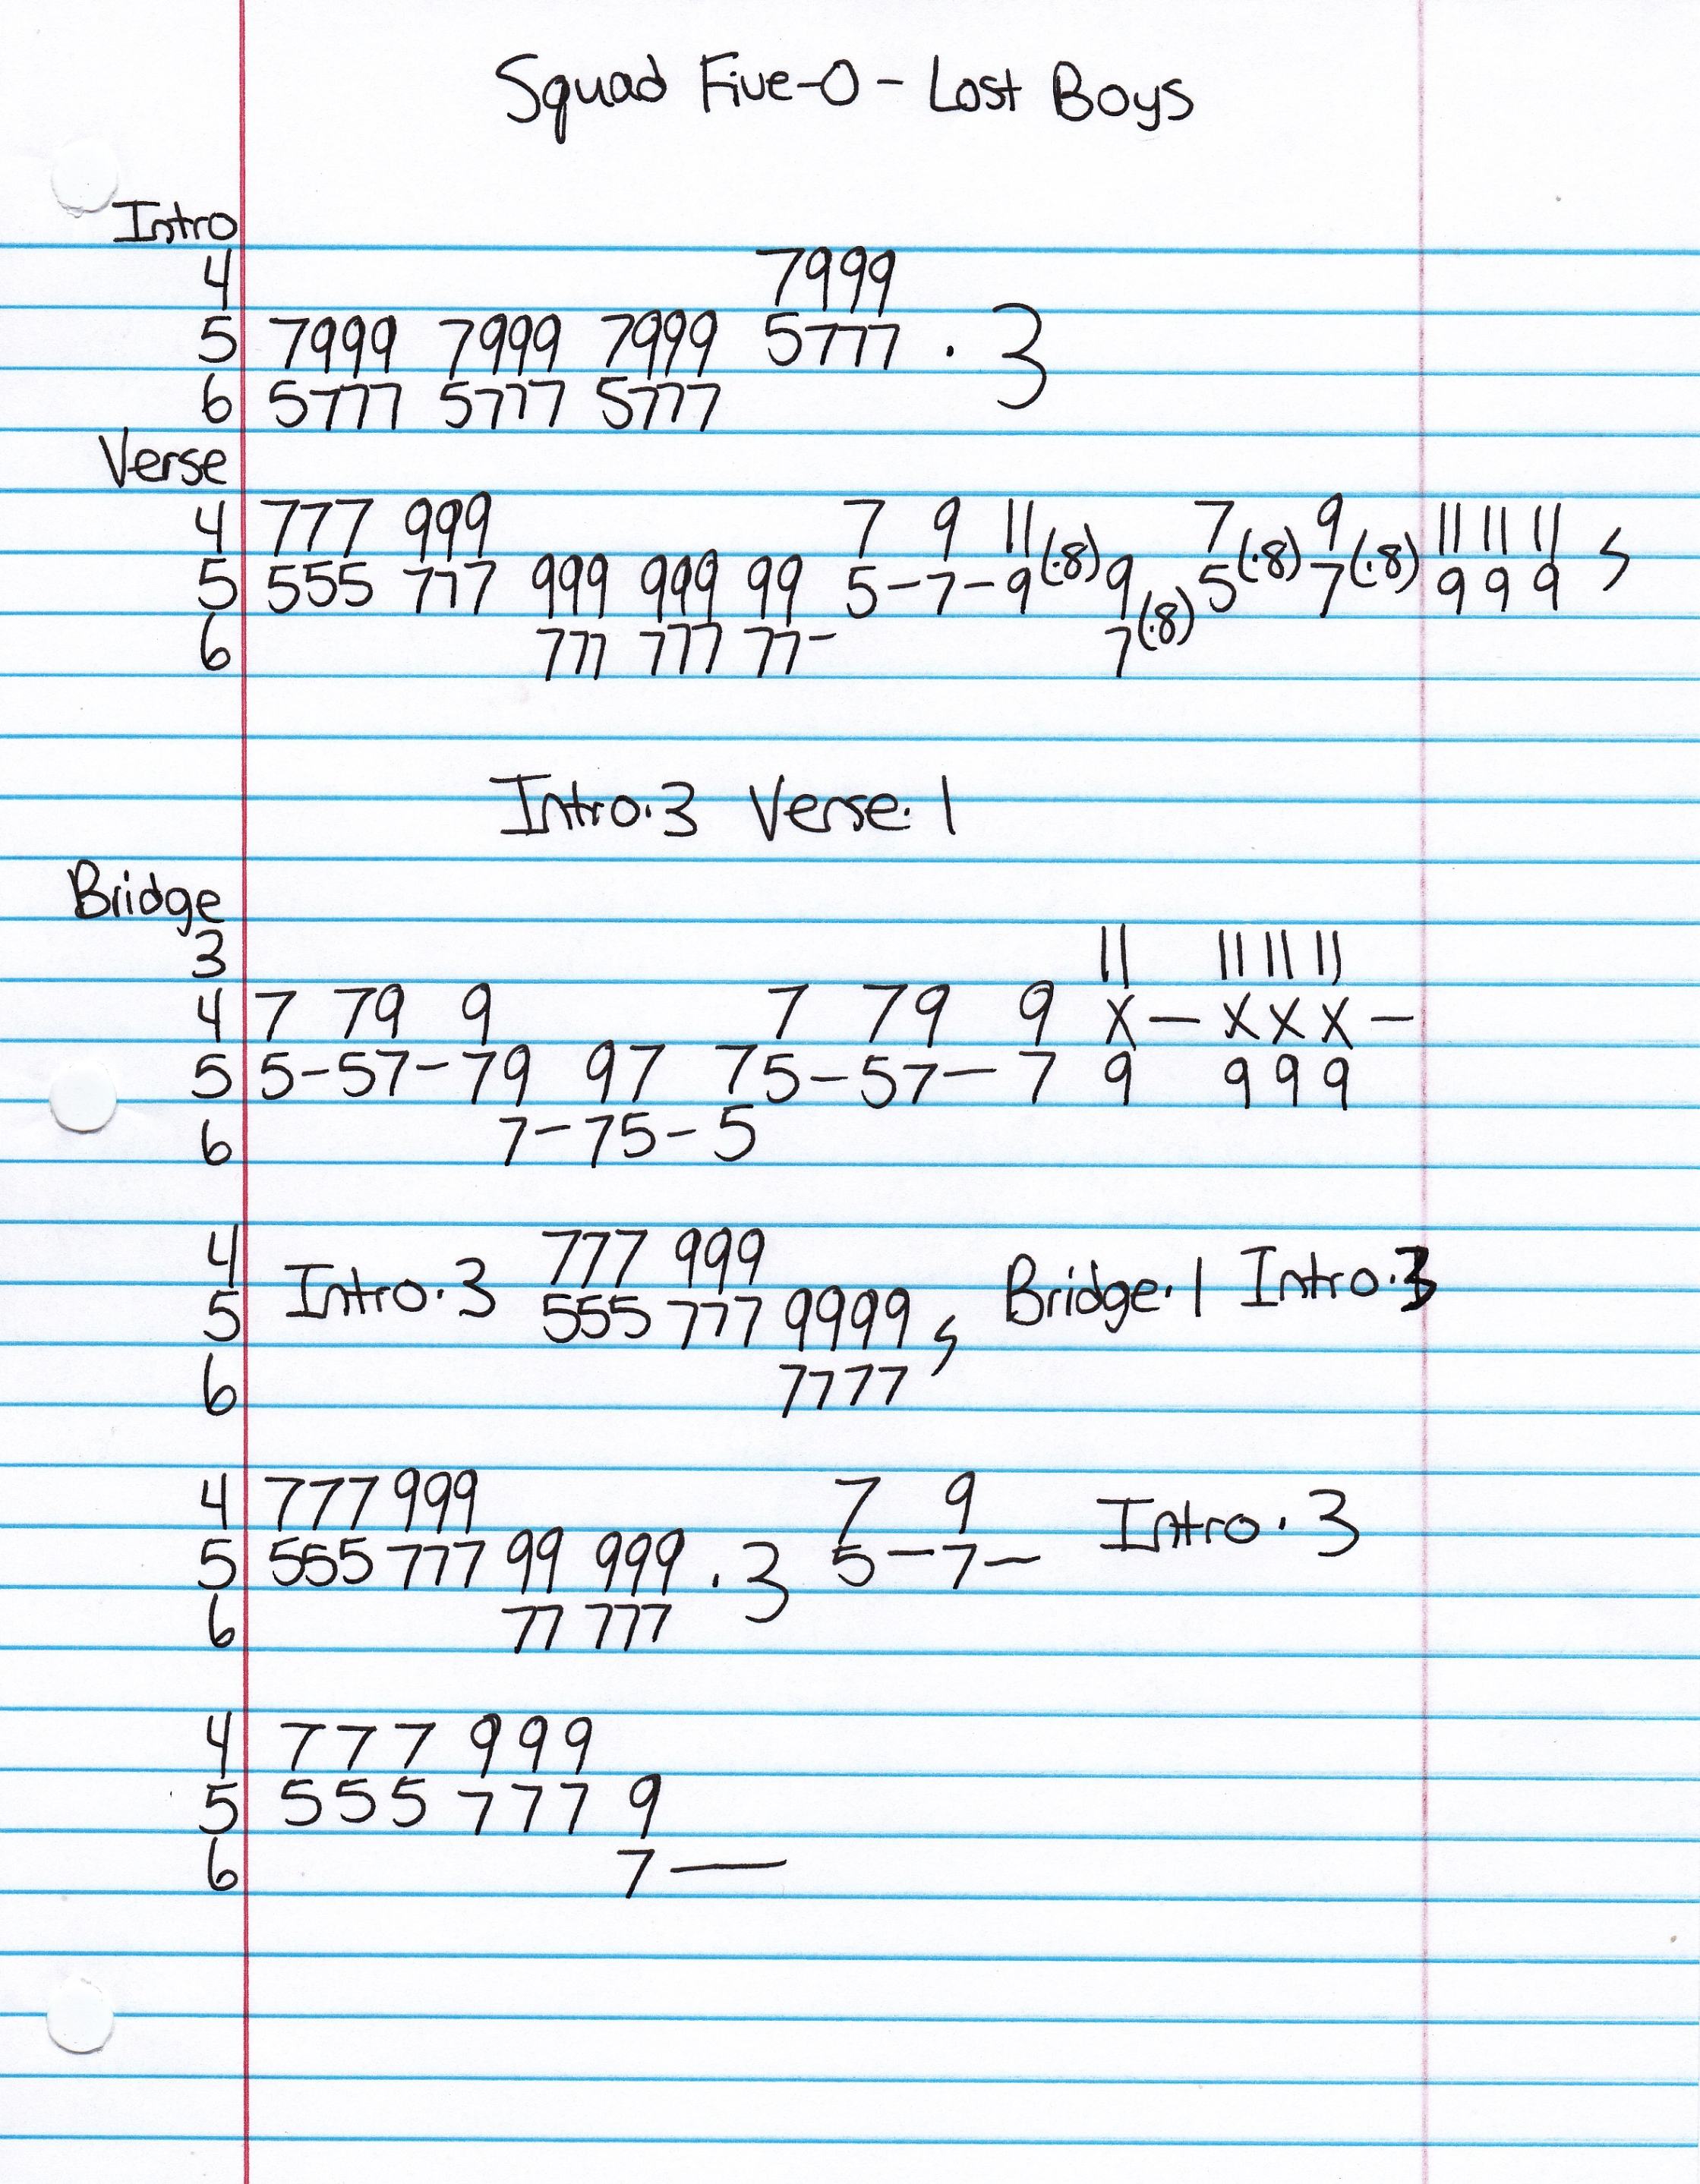 Squad Five-O - Lost Boys
Intro
4 7999
5 7999 7999 7999 5777 · 3
6 5777 5777 5777
Verse
4 777 999 7 9 11(·8) 7(·8) 9(·8) 11 11 11
5 555 777 999 999 99 5-7-9 9(·8) 5 7 9 9 9
6 777 777 77- 7
Intro·3 Verse·1
Bridge
3 11 11 11 11
4 7 79 9 7 79 9 x - x x x -
5 5-57-79 97 75-57- 7 9 9 9 9
6 7-75-5
4 777 999
Intro·3 Bridge·1 Intro·3
5 555 777 9999
6 7777
4 777 999 7 9 Intro·3
5 555 777 99 999 ·3 5-7-
6 77 777
4 7 7 7 9 9 9
5 5 5 5 7 7 7 9
6 7-